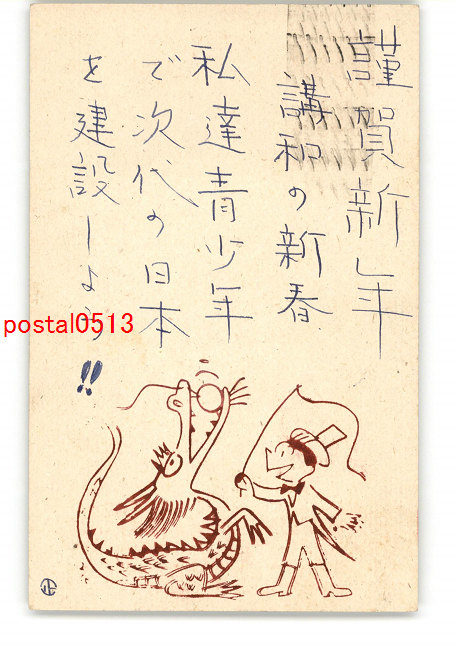 謹賀新年
講和の新春
私達青少年
で次代の日本
を建設しよう!!
postal0513